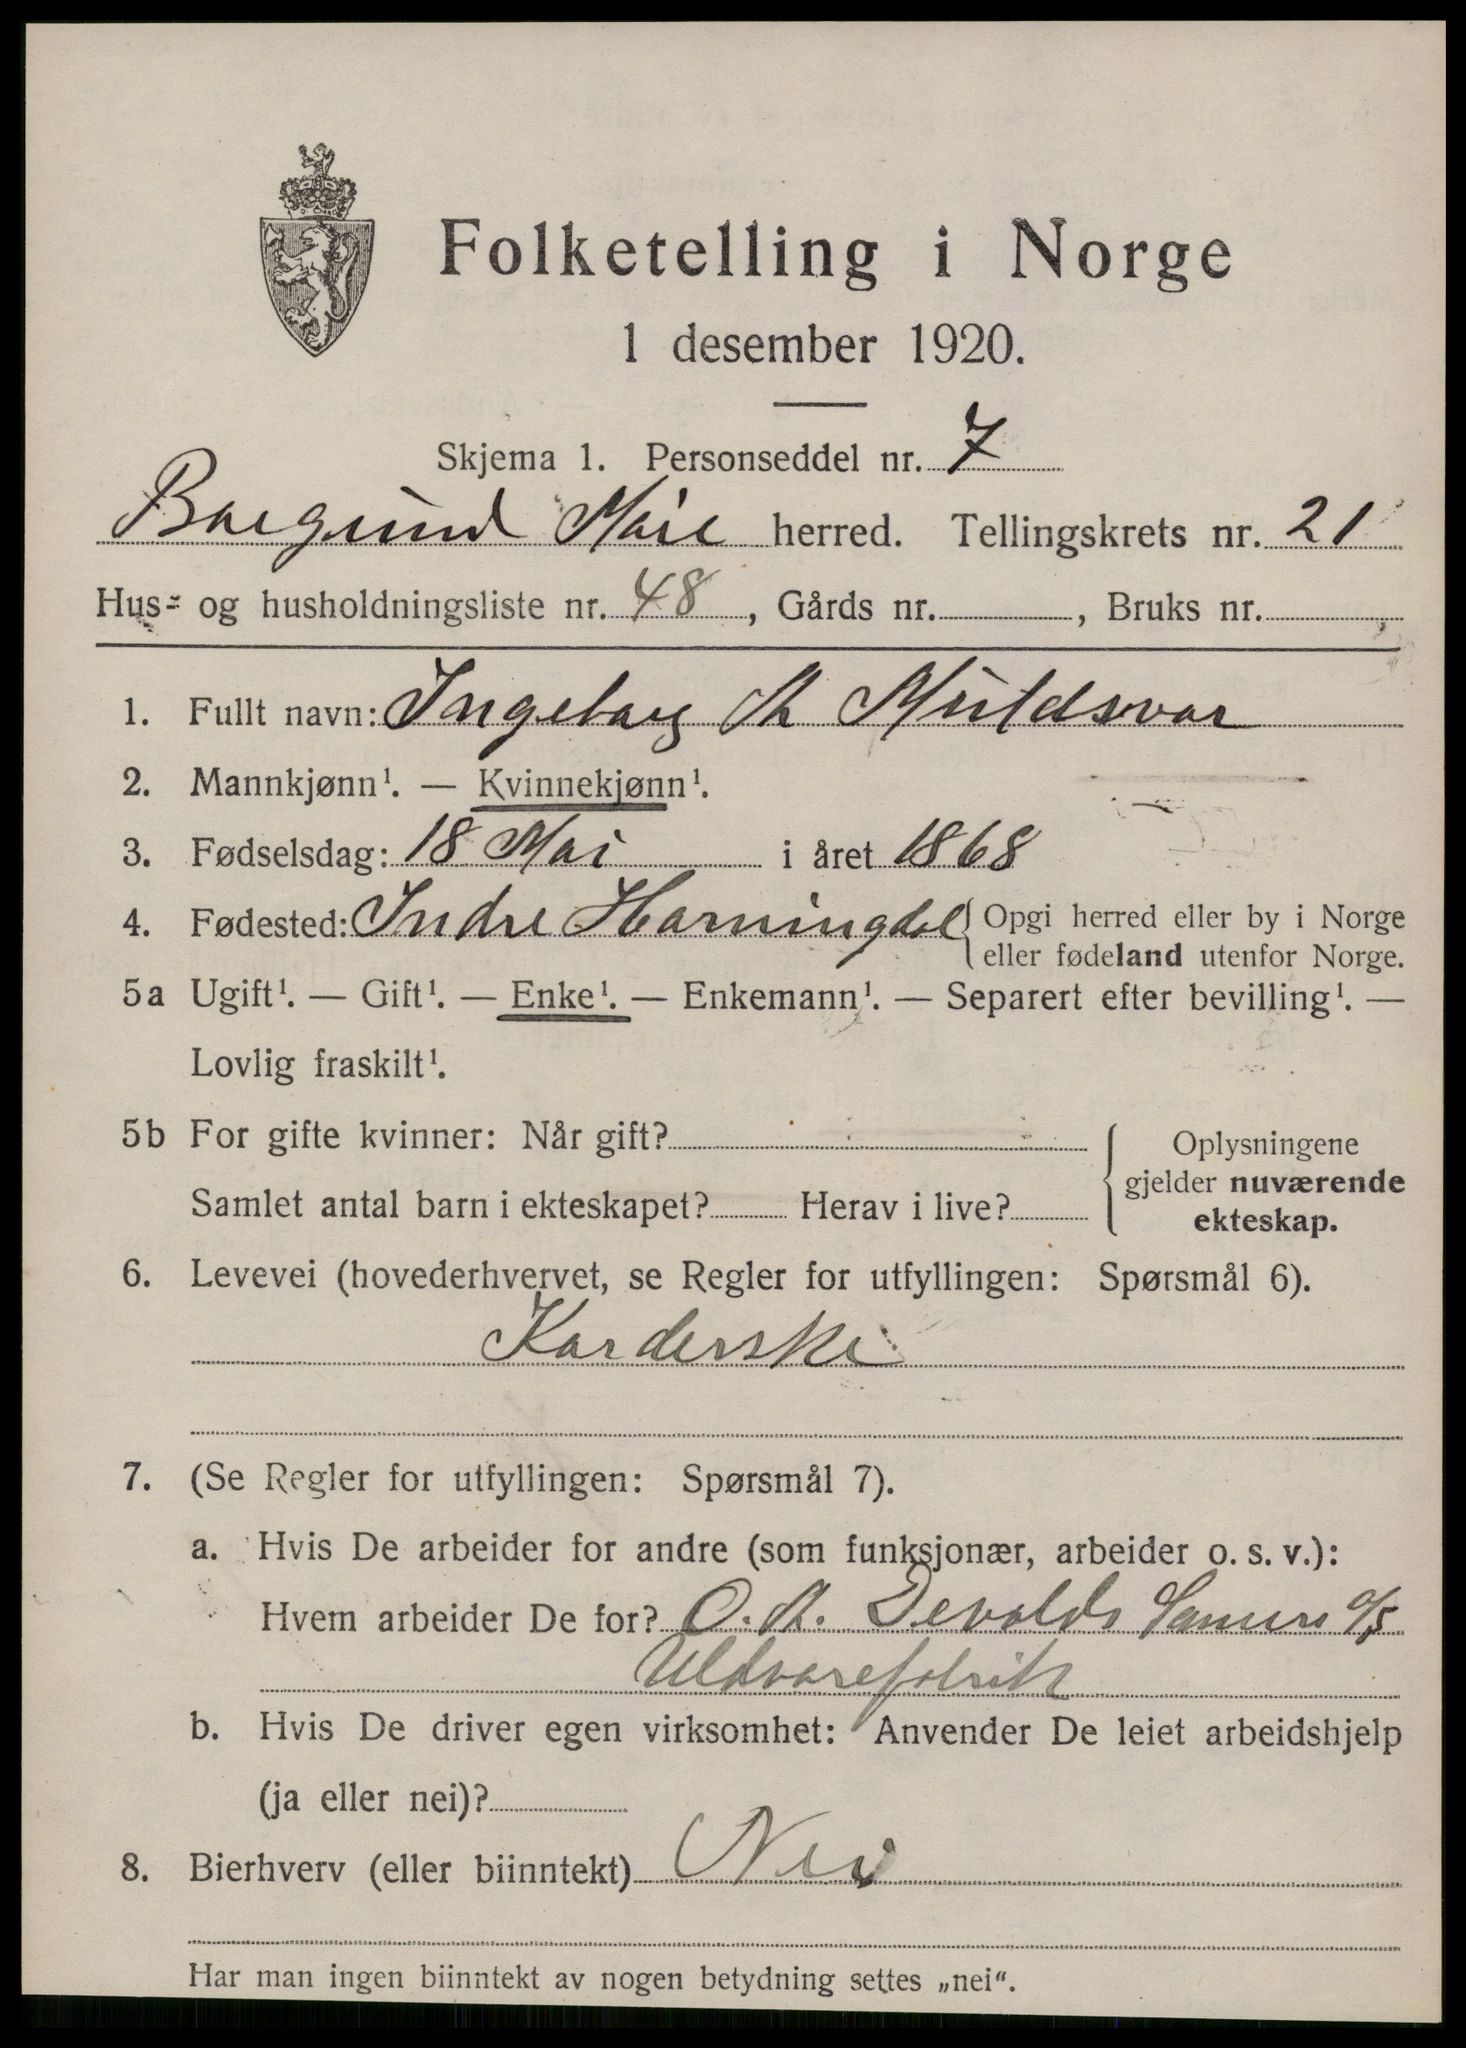 Folketelling i Norge
1 desember 1920.
Skjema 1. Personseddel nr. 7
Borgund Møre herred. Tellingskrets nr. 21
Hus- og husholdningsliste nr. 48, Gårds nr. , Bruks nr.
1. Fullt navn: Ingeborg M Muldsvor
2. Mannkjønn¹. — Kvinnekjønn¹.
3. Fødselsdag: 18 Mai i året 1868
4. Fødested: Indre Horningdal { Opgi herred eller by i Norge
eller fødeland utenfor Norge.
5a Ugift¹. — Gift¹. — Enke¹. — Enkemann¹. — Separert efter bevilling¹. —
Lovlig fraskilt¹.
5b For gifte kvinner: Når gift?
Samlet antal barn i ekteskapet? Herav i live?
{ Oplysningene
gjelder nuværende
ekteskap.
6. Levevei (hovederhvervet, se Regler for utfyllingen: Spørsmål 6).
Karderske
7. (Se Regler for utfyllingen: Spørsmål 7).
a. Hvis De arbeider for andre (som funksjonær, arbeider o. s. v.):
Hvem arbeider De for? O. A. Devolds Sønners A/S
Uldvarefabrik
b. Hvis De driver egen virksomhet: Anvender De leiet arbeidshjelp
(ja eller nei)?
8. Bierhverv (eller biinntekt) Nei
Har man ingen biinntekt av nogen betydning settes „nei“.